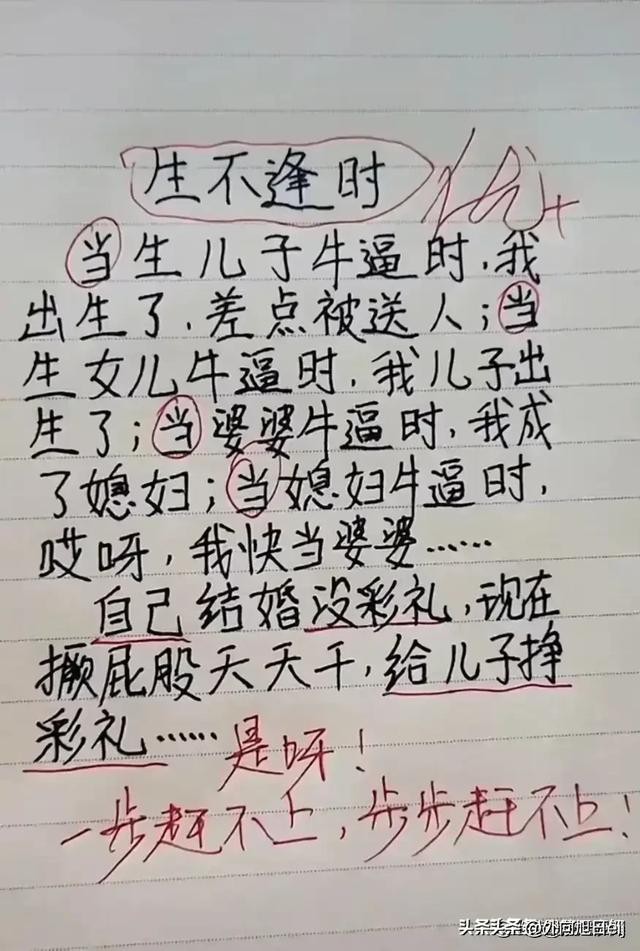 生不逢时
优+
当生儿子牛逼时，我
出生了，差点被送人；当
生女儿牛逼时，我儿子出
生了；当婆婆牛逼时，我成
了媳妇；当媳妇牛逼时，
哎呀，我快当婆婆……
自己结婚没彩礼，现在
撅屁股天天干，给儿子挣
彩礼……是呀！
一步赶不上，步步赶不上！